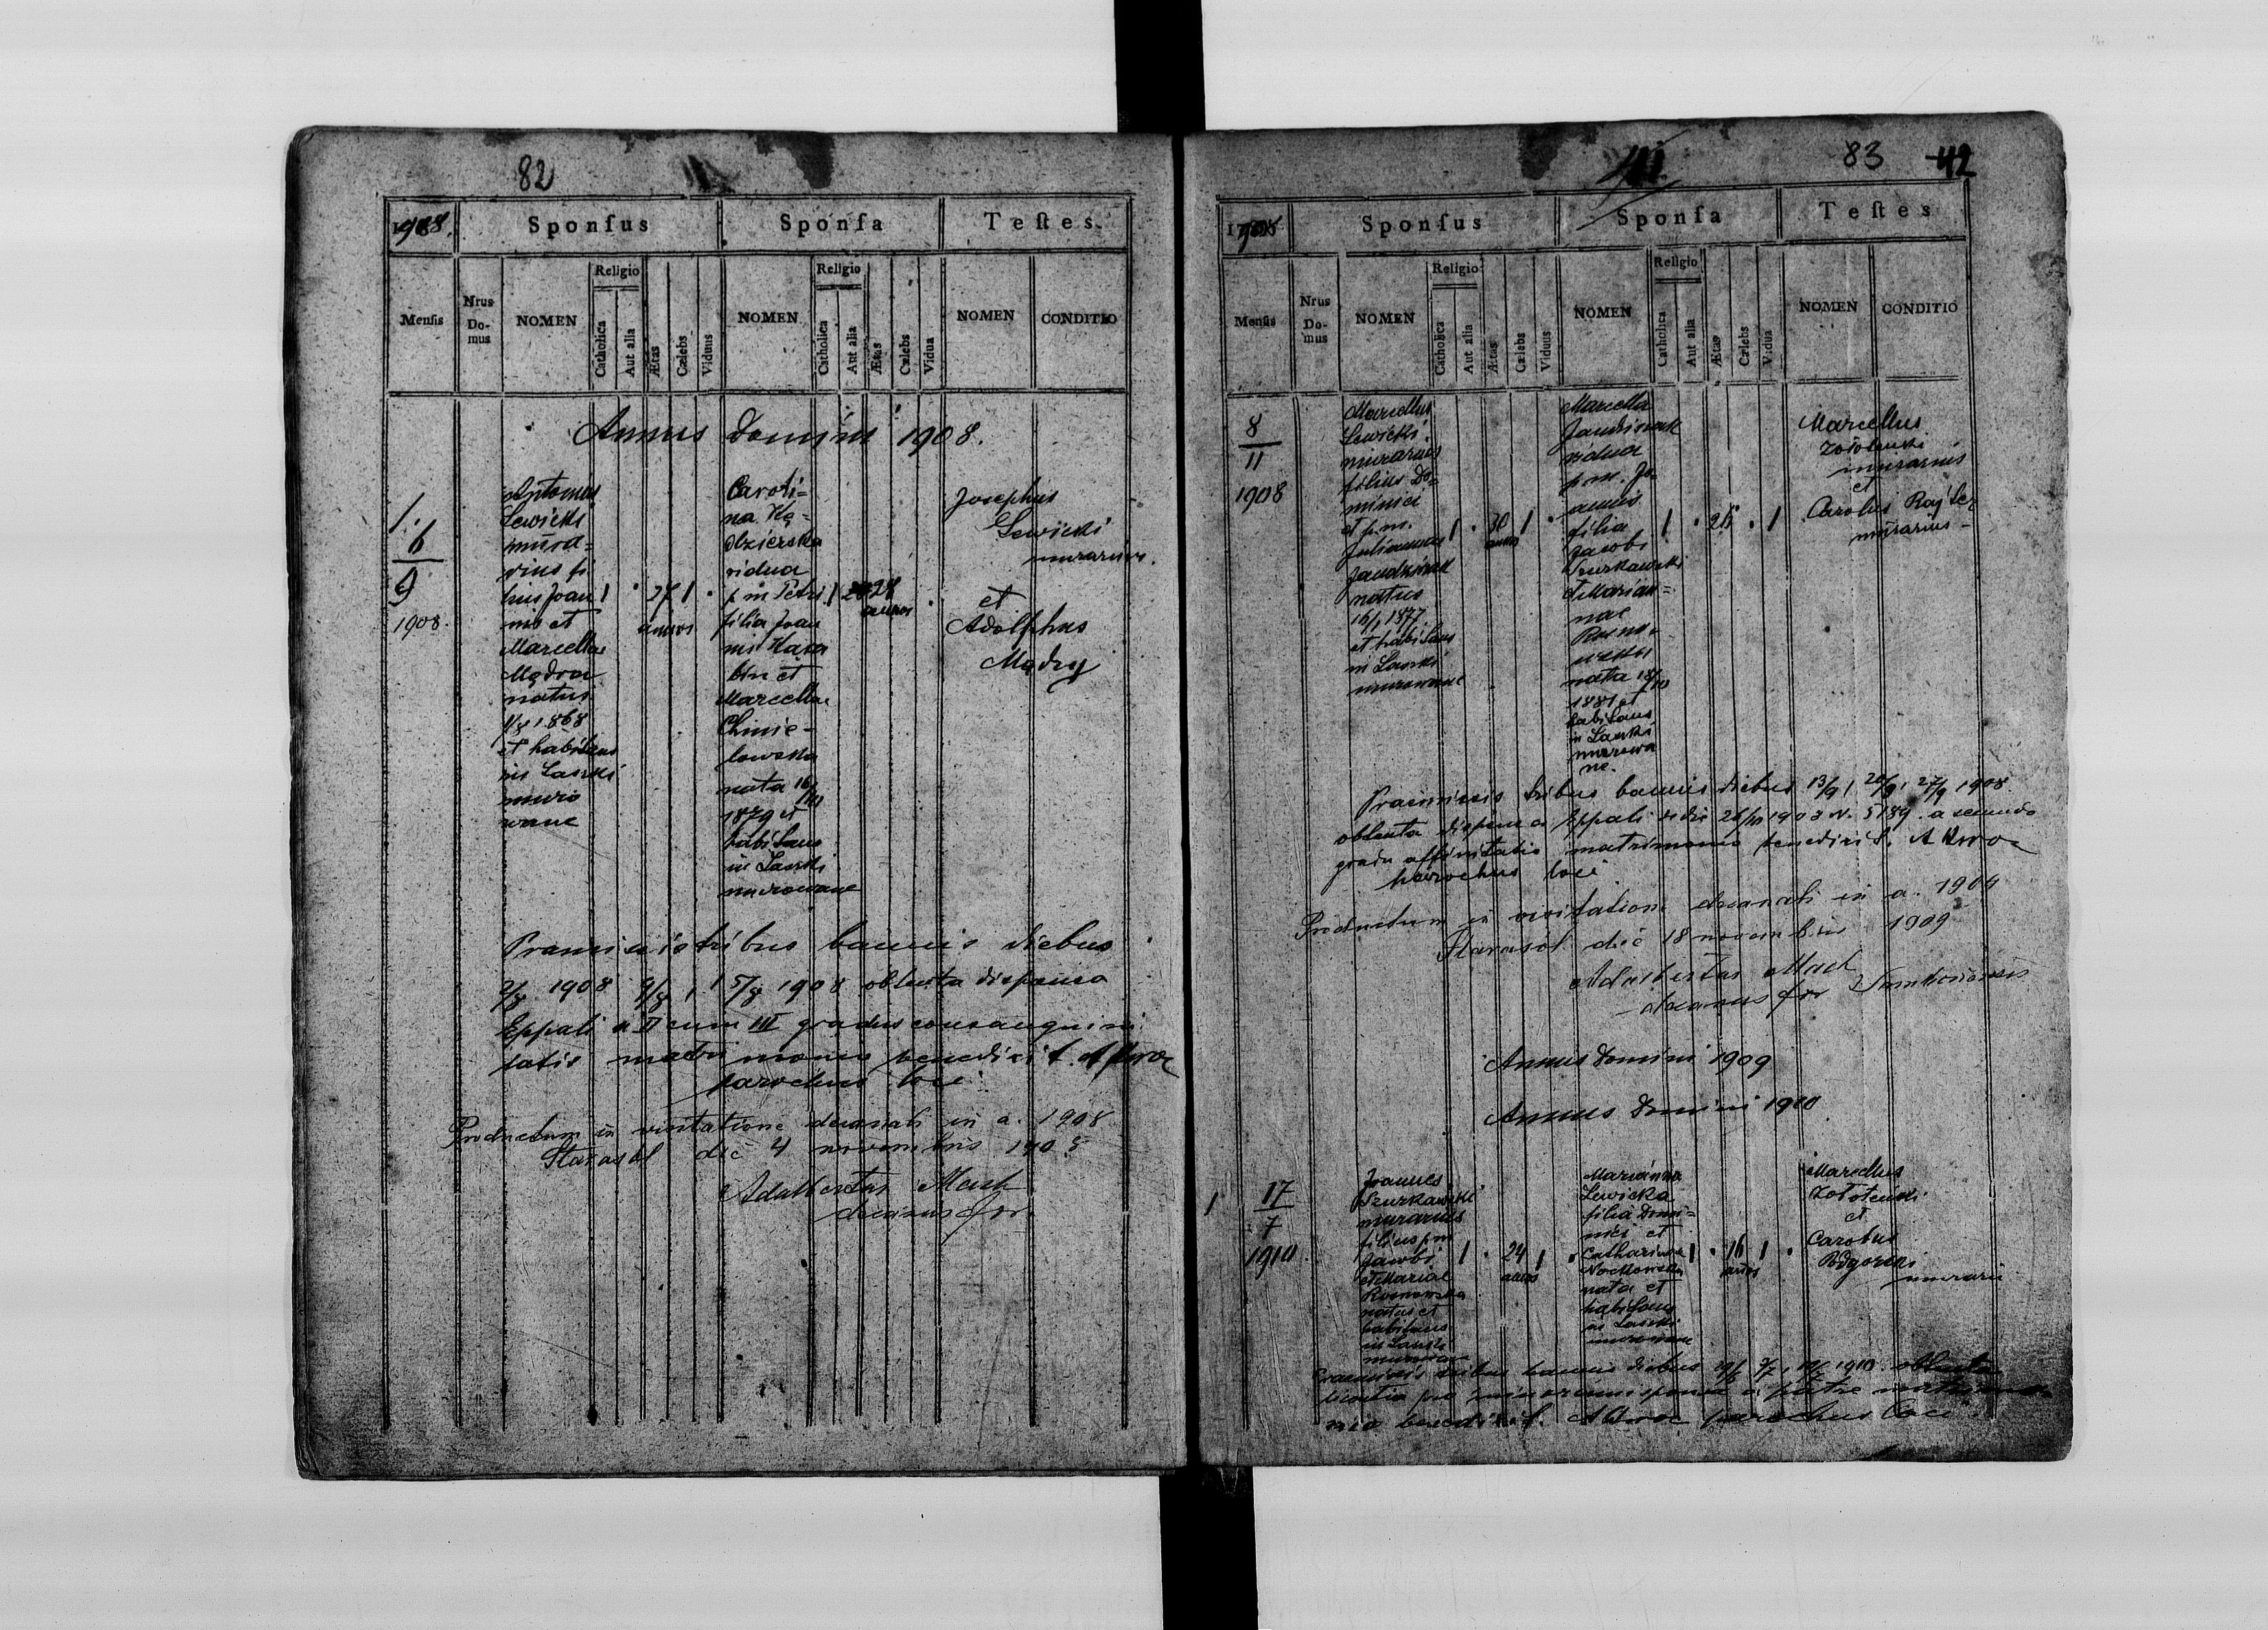 82
1908.
Sponſus
Sponſa
Teſtes.
Menſis
Nrus Do- mus
NOMEN
Religio
Catholica
Aut alia
Ætas
Cælebs
Viduus
NOMEN
Religio
Catholica
Aut alia
Ætas
Cælebs
Vidua
NOMEN
CONDITIO
Annus Domini 1908.
1.
6
9
1908.
Antonius
Lewicki
murar=
rius fi
lius Joan
nis et
Marcellae
Mądra
natus
1868
et habitans
in Laszki
muro
wane
1
37
annos
1
Caroli=
na Ką=
dzierska
vidua
p m Petri
filia Joan
nis
et
Marcellae
Chmie-
lowska
nata 16/
1879 et
habitans
in Laszki
murowane
1
28
annos
Josephus
Lewicki
murarius.
et
Adolphus
Mądry
Praemissis tribus bannis diebus
2/8 1908 9/8, 15/8 1908 obtenta dispensa
Eppali a II cum III gradus consanguini
tatis matrimonium benedixit. A
parochus loci
Productum in visitatione decanali in a. 1908
Starasól die 4 novembris 1908
Adalbertus Mach
decanus for.
83 42
1908
Sponſus
Sponſa
Teſtes
Menſis
Nrus Do- mus
NOMEN
Religio
Catholica
Aut alia
Ætas
Cælebs
Viduus
NOMEN
Religio
Catholica
Aut alia
Ætas
Cælebs
Vidua
NOMEN
CONDITIO
8
11
1908
Marcellus
Lewicki
murarius
filius Do=
minici
et p.m.
Julianna
natus
16/1 1877
et habitans
in Laszki
murowane
1
30
annos
1
Marcella
vidua
p.m. Jo
annis
filia
Jacobi
Szurkawski
et Marian=
nae
Rosno
wska
nata 18/10
1881 et
habitans
in Laszki
murowa
ne.
1
1
Marcellus
Zołoteński
murarius
et
Carolus
murarius
Praemissis tribus bannis diebus 13/9, 20/9, 27/9 1908
obtenta dispensa Eppali N. 5189. a secundo
gradu affinitatis matrimonium benedixit. A
parochus loci
Productum in visitatione decanali in a. 1909
Starasól die 18 novembris 1909
Adalbertus Mach
decanus for
Annus Domini 1909
Annus Domini 1910
1
17
7
1910
Joannes
Szurkawski
murarius
filius p m
Jacobi
et Mariae
Rosnowska
natus et
habitans
in Laszki
murowane
1
24
annos
1
Marianna
Lewicka
filia Domi=
nici et
Catharinae
nata et
habitans
in Laszki
murowane
1
16
annos
1
Marcellus
Zołoteński
et
Carolus
Podgórski
murarii
Praemissis tribus bannis diebus 1910 obtenta
licentia pro a patre matrimo
nio benedixit. A parochus loci